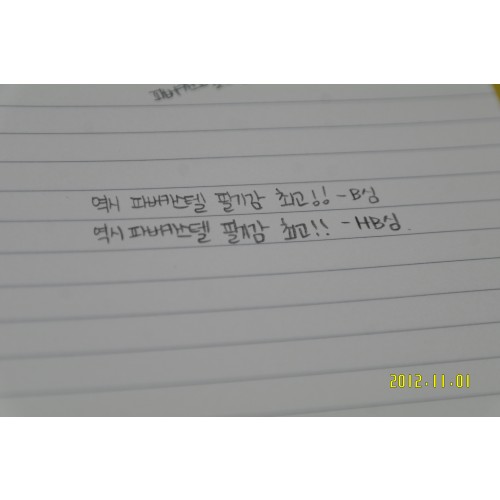 역시 파버카스텔 필기감 최고!! -B심
역시 파버카스텔 필기감 최고!! -HB심.
2012.11.01